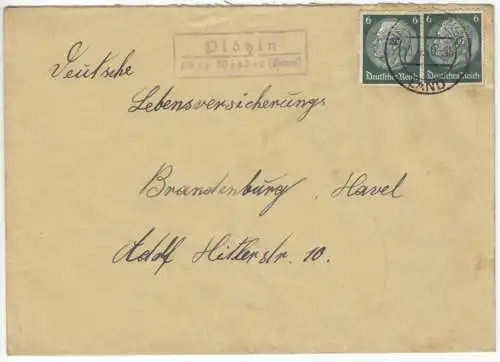 Plötzin
über Werder (Havel)
6 6
Deutsches Reich Deutsches Reich
LAND
Deutsche
Lebensversicherungs
Brandenburg, Havel
Adolf Hitlerstr. 10.